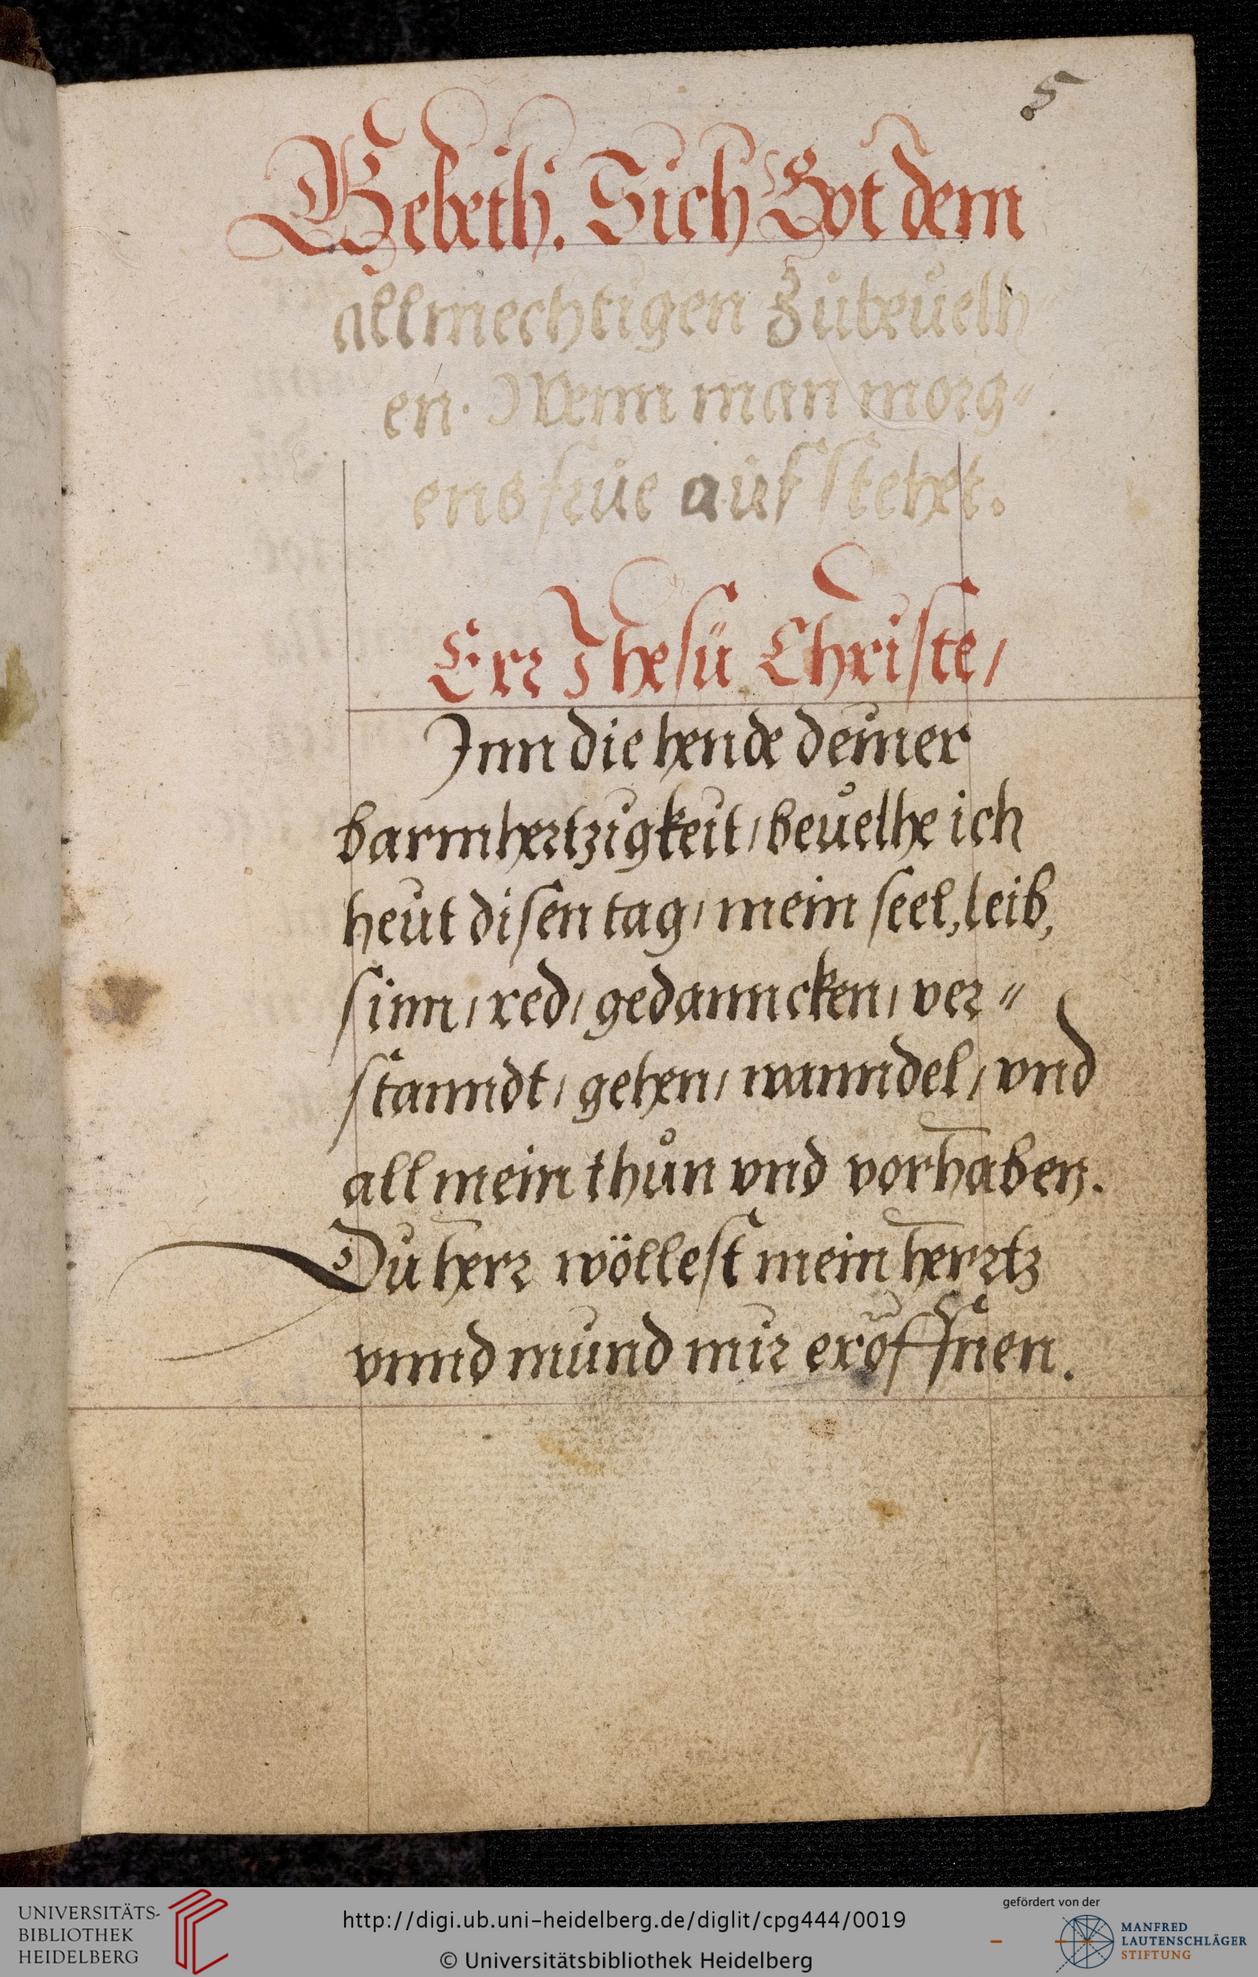 5
Gebeth. Sich Got dem
allmechtigen Zubeuelh„
en. Wenn man morg„
ens frue auf stehet.
Err Jhesu Christe/
Jnn die hende deiner
barmhertzigkeit/ beuelhe ich
heut disen tag/ mein seel, leib,
sinn/ red/ gedanncken/ ver„
stanndt/ gehen/ wanndel/ vnd
all mein thůn vnd vorhaben.
Du herr wöllest mein herrtz
vnnd mund mir eröffnen.
UNIVERSITÄTS-
BIBLIOTHEK
HEIDELBERG
http://digi.ub.uni-heidelberg.de/diglit/cpg444/0019
© Universitätsbibliothek Heidelberg
gefördert von der
MANFRED
LAUTENSCHLÄGER
STIFTUNG